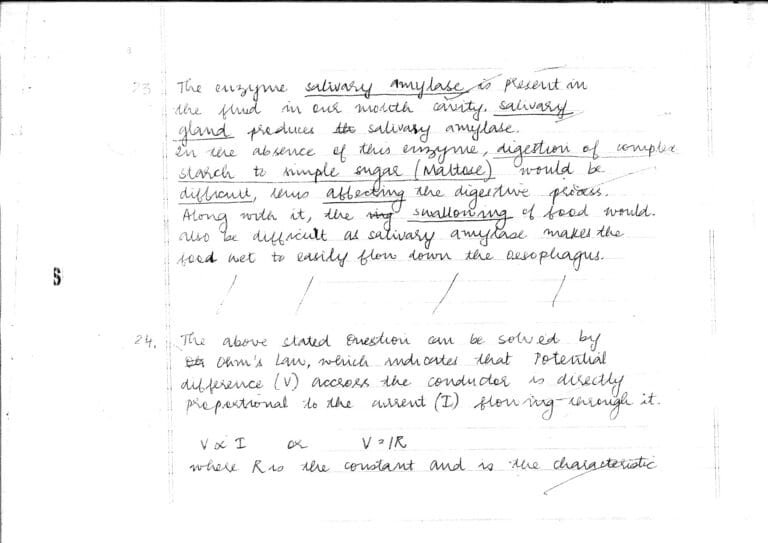 23 The enzyme salivary amylase is present in
the fluid in our mouth cavity. salivary
gland produces salivary amylase.
In the absence of this enzyme, digestion of complex
starch to simple sugar (Maltose) would be
difficult, thus affecting the digestive process.
Along with it, the swallowing of food would
also be difficult as salivary amylase makes the
food wet to easily flow down the oesophagus.
S
24. The above stated Question can be solved by
Ohm's Law, which indicates that Potential
difference (V) accross the conductor is directly
proportional to the current (I) flowing through it.
V ∝ I or V = IR
where R is the constant and is the characteristic